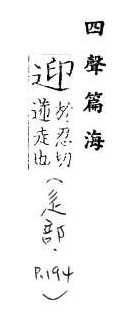 四聲篇海
於忍切
走也
(辵部.
P.194)